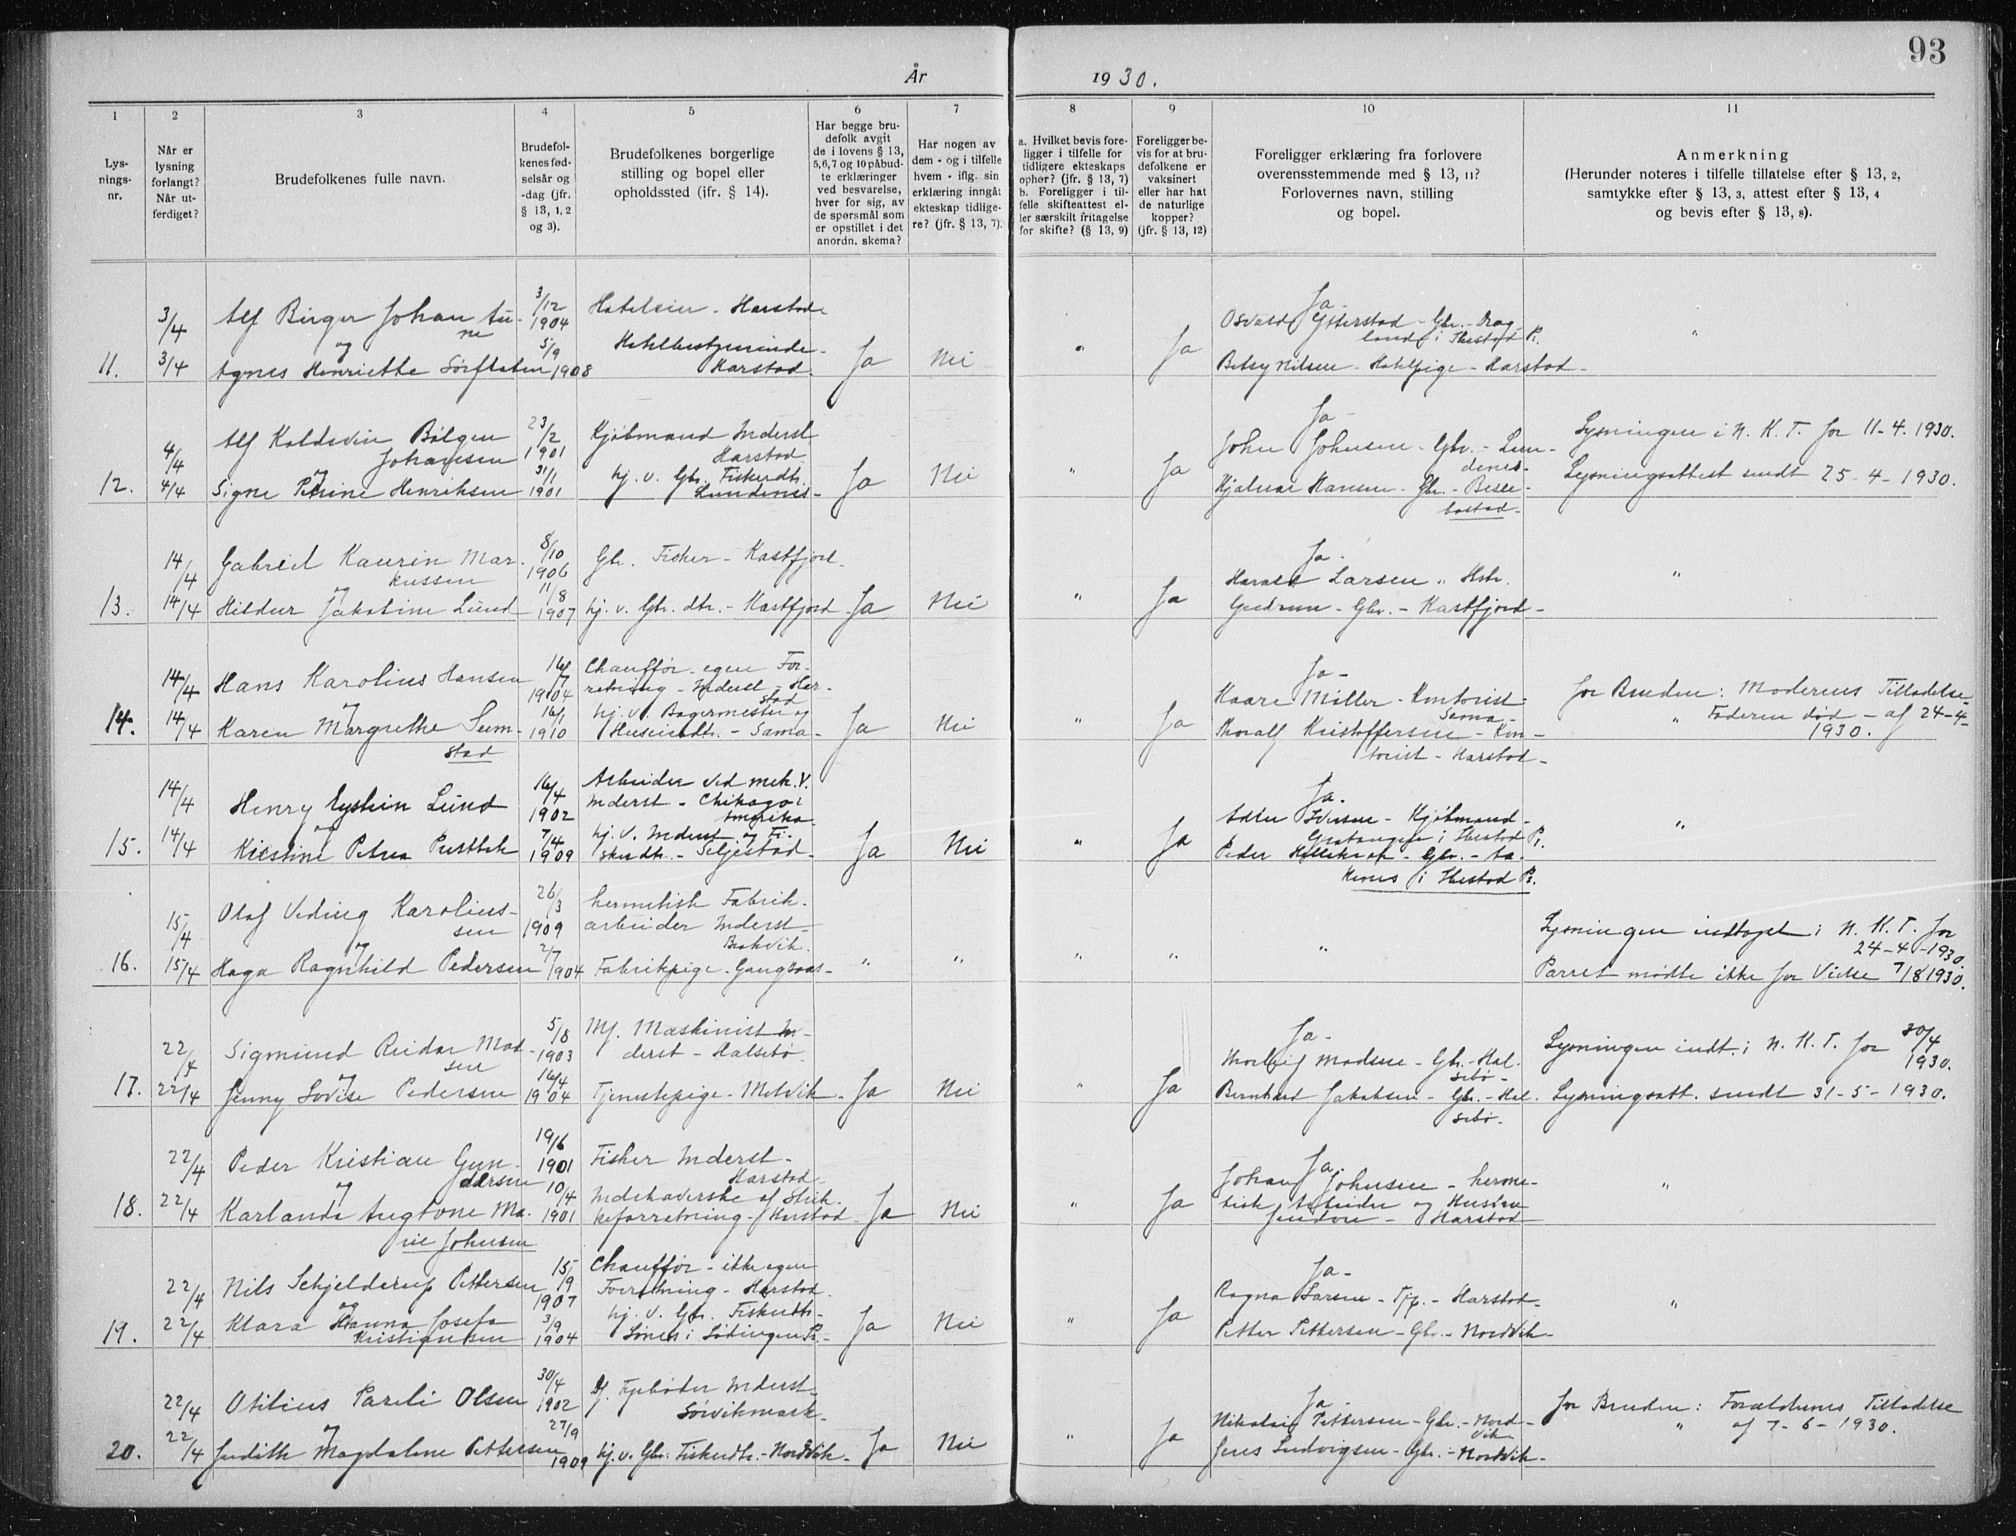 93
År 1930.
1 2 3 4 5 6 7 8 9 10 11
Lysnings-
nr.
Når er
lysning
forlangt?
Når ut-
ferdiget?
Brudefolkenes fulle navn.
Brudefol-
kenes fød-
selsår og
-dag (jfr.
§ 13, 1, 2
og 3).
Brudefolkenes borgerlige
stilling og bopel eller
opholdssted (ifr. § 14).
Har begge bru-
defolk avgit
de i lovens § 13,
5,6,7 og 10 påbud-
te erklæringer
ved besvarelse,
hver for sig, av
de spørsmål som
er opstillet i det
anordn. skema?
Har nogen av
dem - og i tilfelle
hvem - iflg. sin
erklæring inngått
ekteskap tidlige-
re? (jfr. § 13, 7).
a. Hvilket bevis fore-
ligger i tilfelle for
tidligere ekteskaps
ophør? (jfr. § 13, 7)
b. Foreligger i til-
felle skifteattest el-
ler særskilt fritagelse
for skifte? (§ 13, 9)
Foreligger be-
vis for at bru-
defolkene er
vaksinert
eller har hat
de naturlige
kopper?
(jfr. § 13, 12)
Foreligger erklæring fra forlovere
overensstemmende med § 13, 11?
Forlovernes navn, stilling
og bopel.
Anmerkning
(Herunder noteres i tilfelle tillatelse efter § 13, 2,
samtykke efter § 13, 3, attest efter § 13, 4
og bevis efter § 13, 8).
11. 3/4 3/4
Alf Birger Johan Au-
ne
og
Agnes Henriette Sørflaten
3/12 1904
5/9 1908
Hoteleier - Harstad
Hotelbestyrerinde -
Harstad.
Ja Nei " Ja
Ja -
Osvald Ytterstad - Gbr. - Drag-
land i Ibestad P.
Betsy Nilsen - Hotelpige - Harstad -
"
12. 4/4 4/4
Alf Koldevin Bølgen
Johansen
og
Signe Petrine Henriksen
23/2 1901
31/1 1901
Kjøbmand Inderst
Harstad.
hj. v. Gbr. Fiskerdtr.
Lundenes -
Ja Nei " Ja
Ja -
John Johnsen - Gbr. - Lun-
denes -
Hjalmar Hansen - Gbr. - Besse-
bostad -
Lysningen i N. K. T. for 11-4. 1930.
Lysningsattest sendt 25-4-1930.
13. 14/4 14/4
Gabriel Kaurin Mar-
kussen
og
Hildur Jakobine Lund
8/10 1906
11/8 1907
Gbr. Fisker - Kastfjord.
hj. v. Gbr. dtr. - Kastfjord.
Ja Nei " Ja
Ja -
Harald Larsen " Hstr.
Gudrun - Gbr. - Kastfjord -
"
14. 14/4 14/4
Hans Karolius Hansen
og
Karen Margrethe Sem-
stad
16/7 1904
16/1 1910
Chauffør - egen For-
retning - Inderst - Har-
stad
hj. v. Bagermester og
Huseierdtr. - Sama -
Ja Nei " Ja
Ja -
Kaare Møller - Kontorist
Sama -
Thoralf Kristoffersen - Kon-
torist - Harstad -
for Bruden: Moderens Tilladelse
" Faderen død - af 24-4-
1930.
15. 14/4 14/4
Henry Eystein Lund
og
Kirstine Petrea
16/4 1902
7/4 1909
Arbeider ved mek. V.
Inderst - Chikago i
Amerika.
hj. v. Inderst og Fi-
skerdtr. - Seljestad -
Ja Nei " Ja
Ja -
Adler Iversen - Kjøbmand -
Gratangen i Ibestad P.
Peder - Gbr. - Aa-
kenes i Ibestad P.
"
16. 15/4 15/4
Olaf Veding Karolius-
sen
og
Haga Ragnhild Pedersen
26/3 1909
2/7 1904
hermetisk Fabrik-
arbeider Inderst -
Brokvik.
Fabrikpige - Gangsaas -
" " " " "
Lysningen indtaget i N. K. T. for
24-4-1930.
Parret mødte ikke for Vielse 7/8 1930.
17. 22/4 22/4
Sigmund Reidar Mad-
sen
og
Jenny Lovise Pedersen
5/8 1903
16/4 1904
Mf. Maskinist In-
derst - Halsebø.
Tjenestepige - Melvik.
Ja Nei " Ja
Ja -
Thorleif Madsen - Gbr. - Hal-
sebø -
Bernhard Jakobsen - Gbr. - Hal-
sebø.
Lysningen indt. i N. K. T. for 30/4
1930.
Lysningsatt. sendt 31-5-1930.
18. 22/4 22/4
Peder Kristian Gun-
dersen
og
Karlanda Angtone Ma-
rie Johnsen
19/6 1901
10/4 1901
Fisker Inderst -
Harstad -
Indehaverske af Strik-
keforretning - Harstad
Ja Nei " Ja
Ja -
Johan Johnsen - herme-
tisk Arbeider og Hustru
- Harstad
"
19. 22/4 22/4
Nils Schjelderup Pettersen
og
Klara Hanna Josefa
Kristiansen
15/9 1907
3/9 1904
Chauffør - ikke egen
Forretning - Harstad.
hj. v. Gbr. Fiskerdtr -
i Lødingen Pr. -
Ja Nei " Ja
Ja -
Ragna Larsen - Tjp. - Harstad -
Petter Pettersen - Gbr. - Nordvik -
"
20. 22/4 22/4
Otilius Pareli Olsen
og
Judith Magdalene Pettersen
30/4 1902
27/9 1909
Df. Fyrbøder Inderst -
Sørvikmark -
hj. v. Gbr. Fiskerdtr. - Nordvik -
Ja Nei " Ja
Ja -
Nikolai Pettersen - Gbr. - Nord-
vik
Jens Ludvigsen - Gbr. - Nordvik -
for Bruden: Forældrenes Tilladelse
" af 7-6-1930.